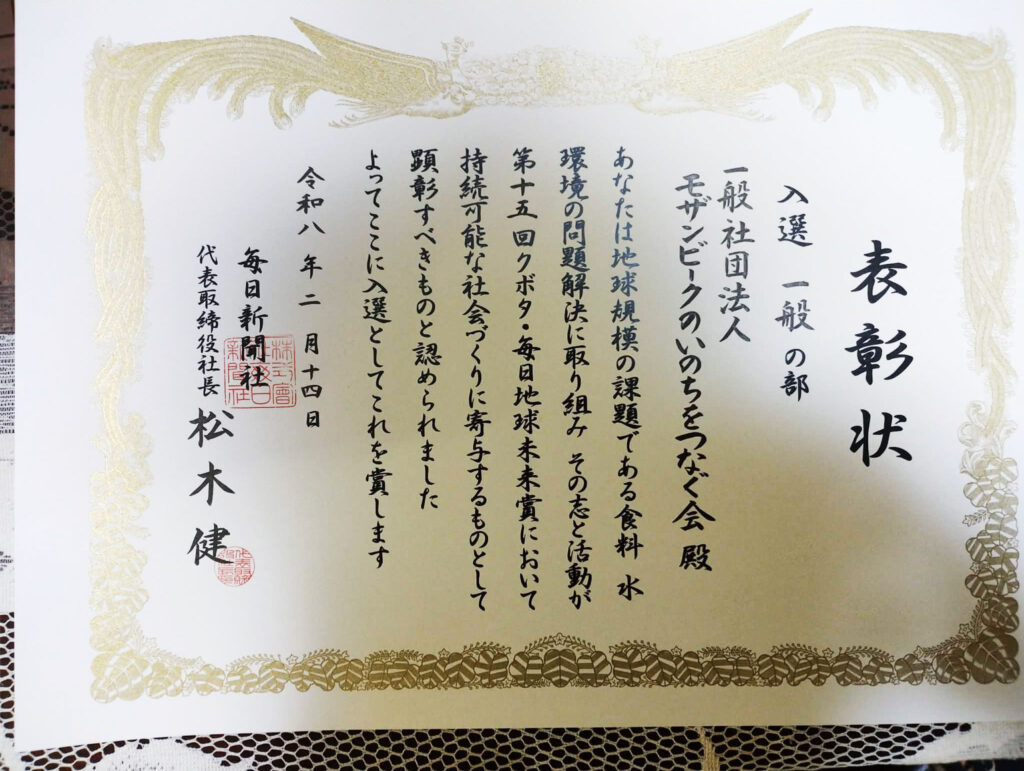 表彰状
入選 一般の部
一般社団法人
モザンビークのいのちをつなぐ会 殿
あなたは地球規模の課題である食料 水
環境の問題解決に取り組み その志と活動が
第十五回クボタ・毎日地球未来賞において
持続可能な社会づくりに寄与するものとして
顕彰すべきものと認められました
よってここに入選としてこれを賞します
令和八年二月十四日
毎日新聞社
代表取締役社長 松木健